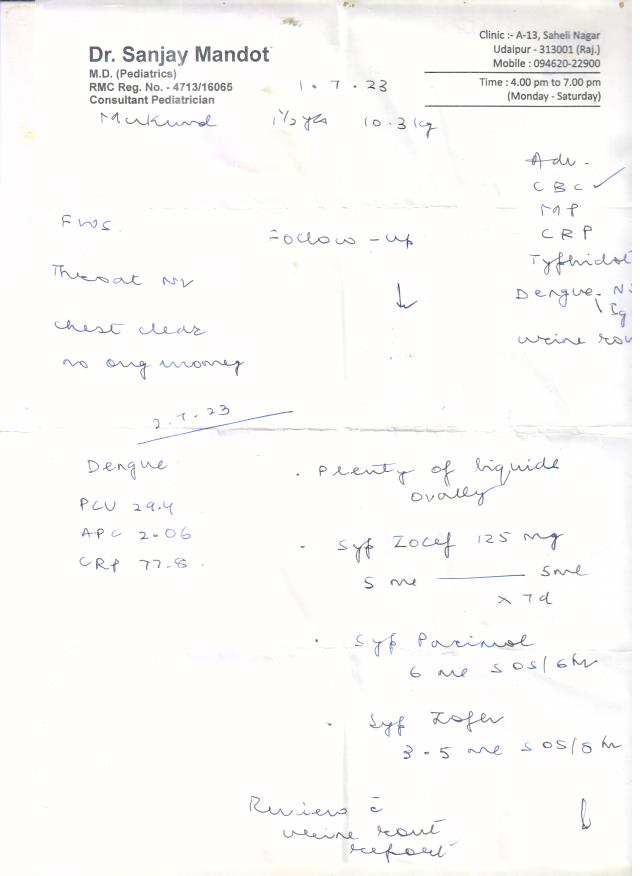 Dr. Sanjay Mandot
M.D. (Pediatrics)
RMC Reg. No. - 4713/16065
Consultant Pediatrician
Clinic :- A-13, Saheli Nagar
Udaipur - 313001 (Raj.)
Mobile : 094620-22900
Time : 4.00 pm to 7.00 pm
(Monday - Saturday)
1.7.23
Mukund 1½ yrs 10.3 kg
Adv -
CBC ✓
MP
CRP
Typhidot
Dengue - NS
Ig
urine rou
FWS
Throat
Chest clear
no
Follow-up
↓
2.7.23
Dengue
PCV 29.4
APC 2.06
CRP 77.8
. Plenty of liquide
orally
. Syp Zocef 125 mg
5 ml —— 5 ml
x 7d
. Syp
6 ml SOS/6hr
. Syp Zofer
3-5 ml SOS/8hr
Review c̄
urine rout
report
↓